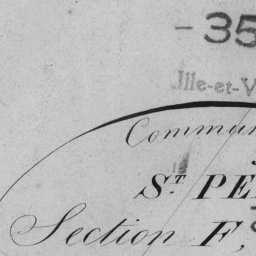 - 35
Ille-et-V
Commun
ST PE
Section F,